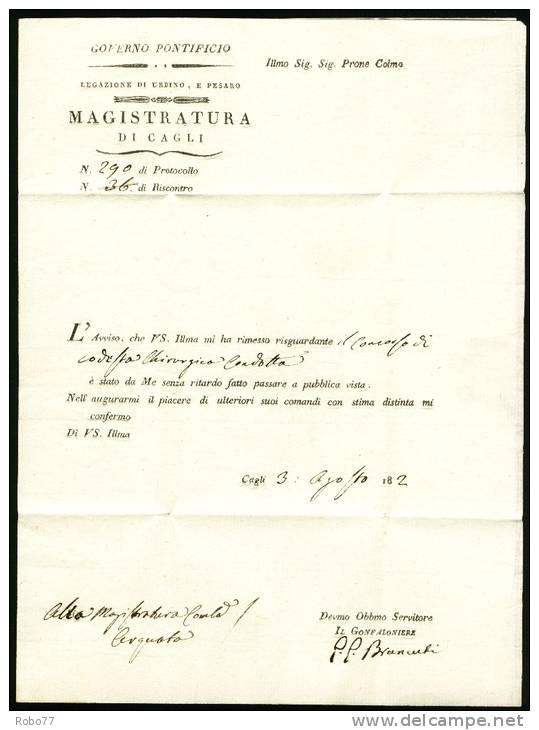 GOVERNO PONTIFICIO
LEGAZIONE DI URBINO, E PESARO
MAGISTRATURA
DI CAGLI
N. 290 di Protocollo
N. 36. di Riscontro
Illmo Sig. Sig. Prone Colmo
L'Avviso, che VS. Illma mi ha rimesso risguardante il Concorso di
codesta Chirurgica Condotta
è stato da Me senza ritardo fatto passare a pubblica vista.
Nell'augurarmi il piacere di ulteriori suoi comandi con stima distinta mi
confermo
Di VS. Illma
Cagli 3: Agosto 182
Alla Magistratura
Arquata
Devmo Obbmo Servitore
IL GONFALONIERE
Robo77
www.delcampe.net